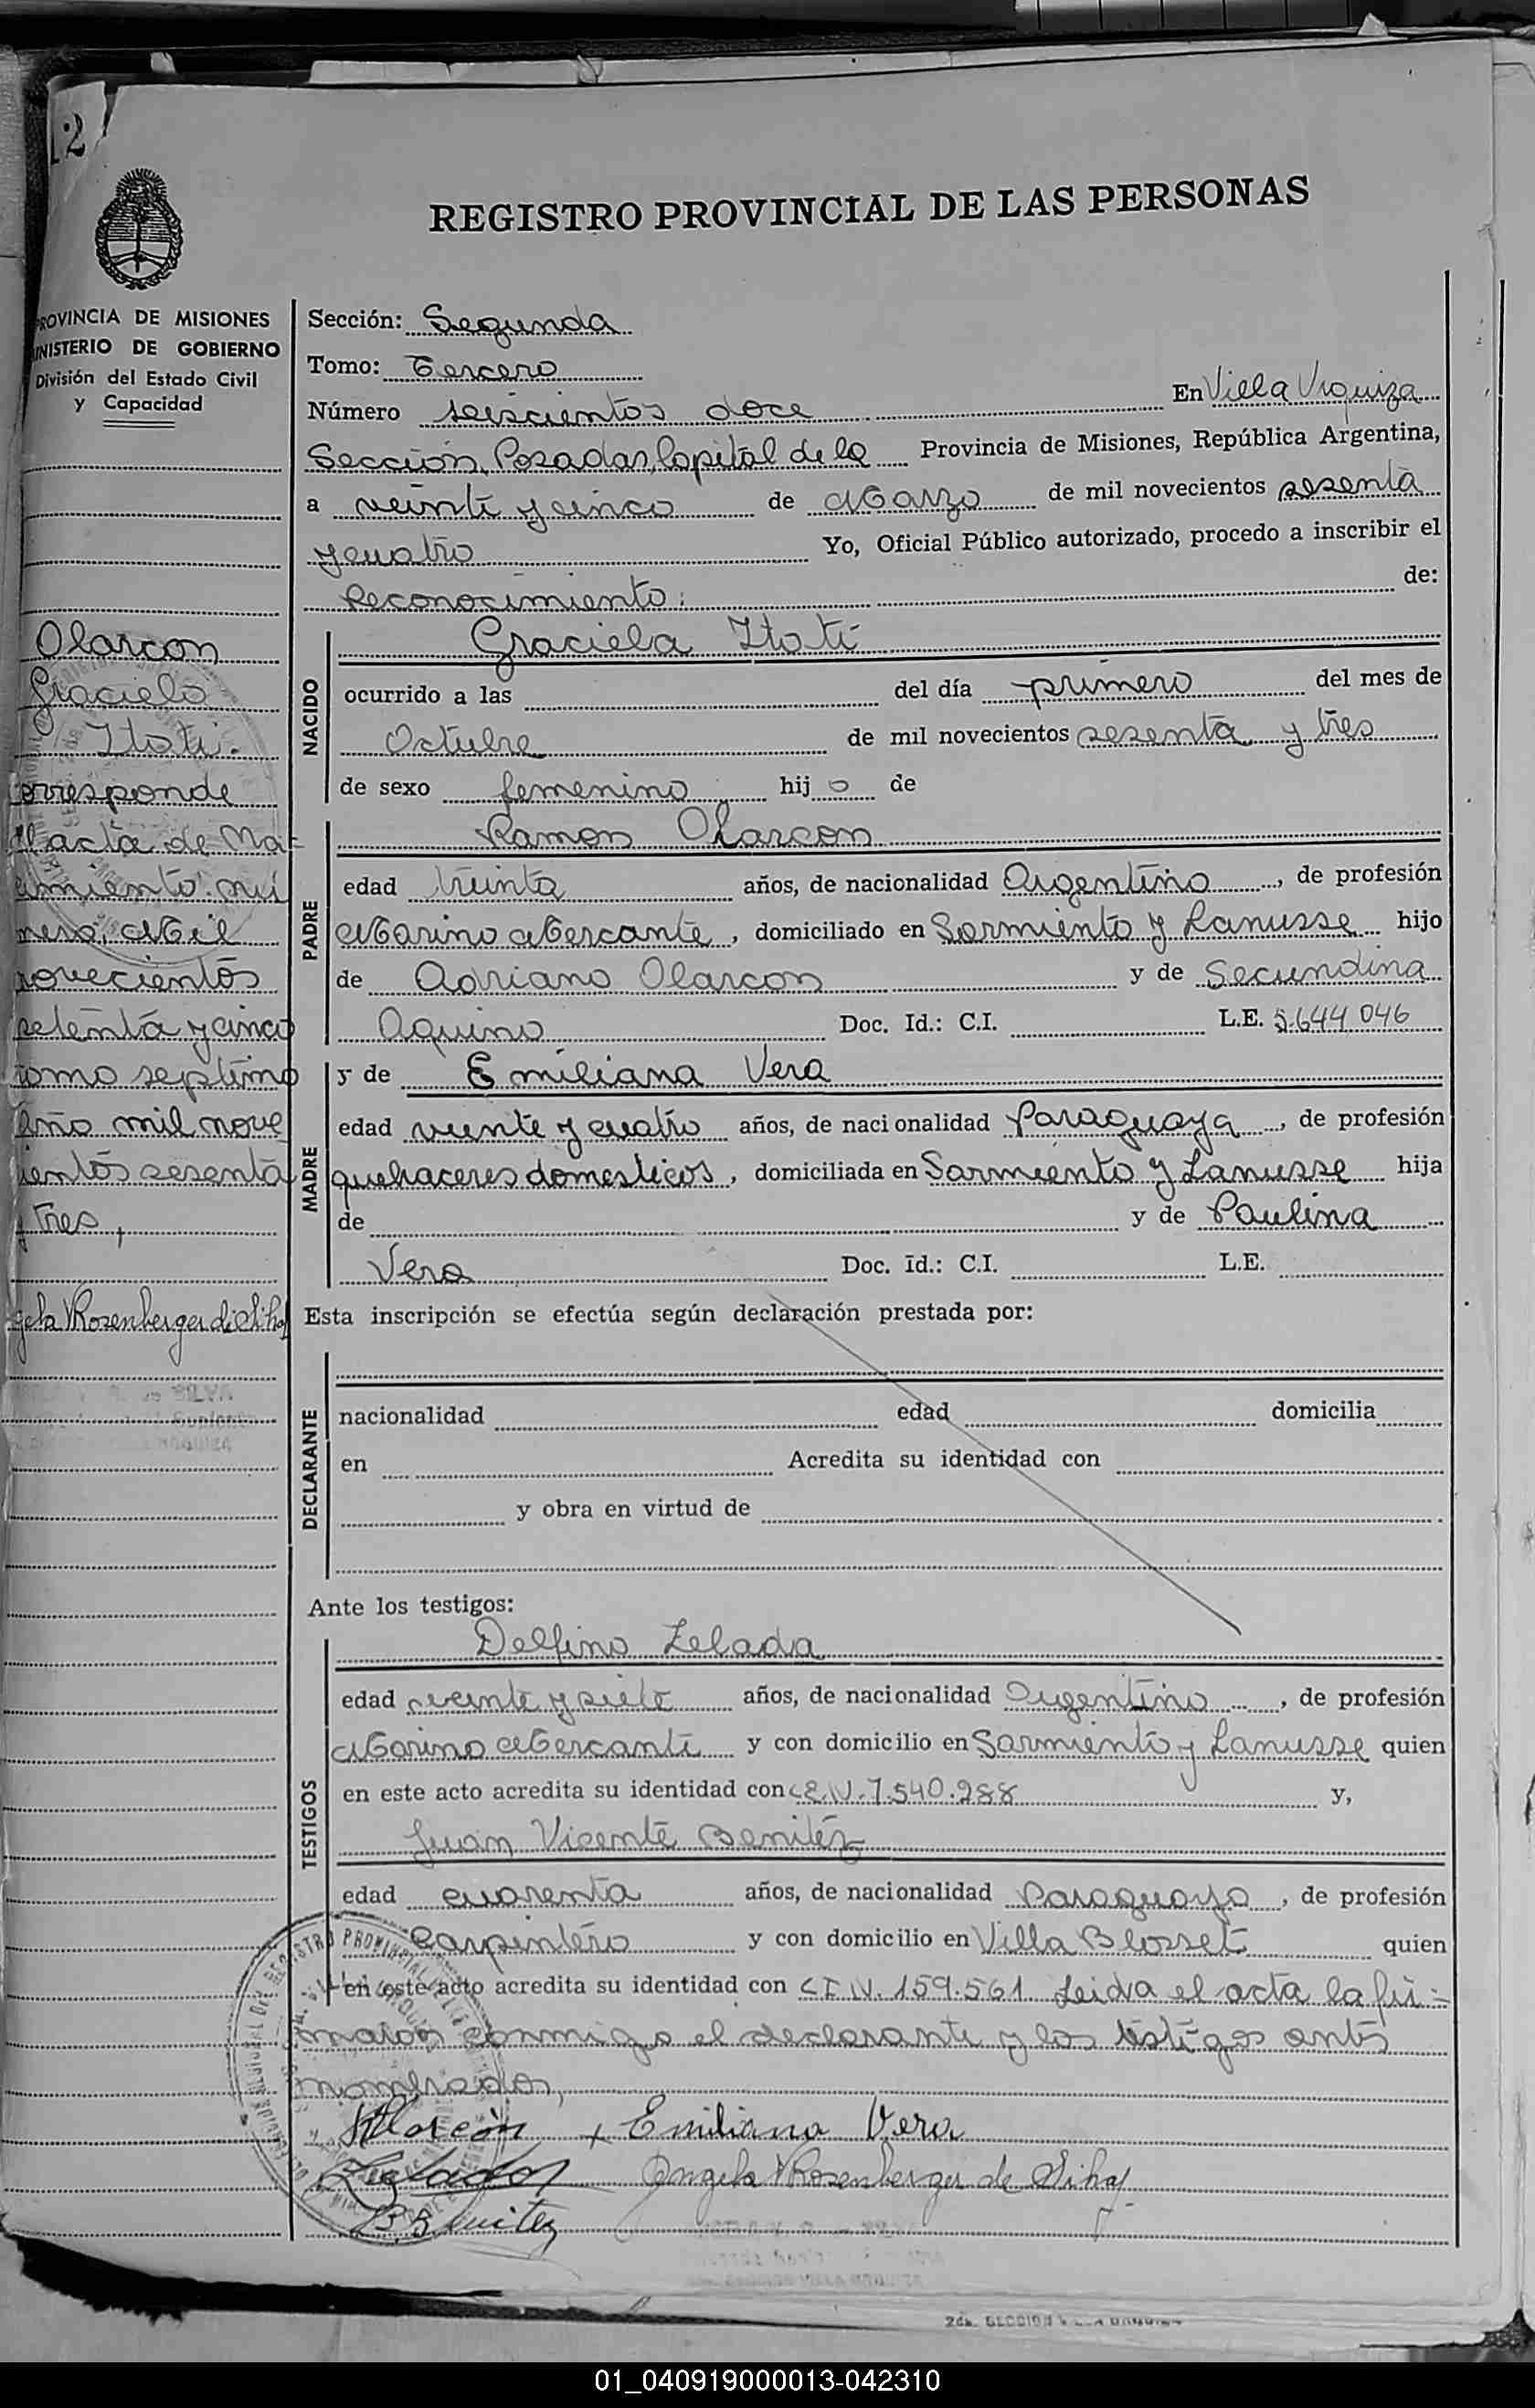 12
REGISTRO PROVINCIAL DE LAS PERSONAS
PROVINCIA DE MISIONES
MINISTERIO DE GOBIERNO
División del Estado Civil
y Capacidad
Alarcon
Graciela
Itati.
Corresponde
al acta de Na-
cimiento nú
mero, Mil
novecientos
setenta y cinco
tomo septimo
año mil nove
cientos sesenta
y tres,
Angela V Rosenberger de Silva
Sección: Segunda
Tomo: Tercero
Número seiscientos doce En Villa Urquiza
Sección, Posadas, Capital de la Provincia de Misiones, República Argentina,
a veinte y cinco de Marzo de mil novecientos sesenta
y cuatro Yo, Oficial Público autorizado, procedo a inscribir el
Reconocimiento: de:
NACIDO
Graciela Itati
ocurrido a las del día primero del mes de
Octubre de mil novecientos sesenta y tres
de sexo femenino hij a de
PADRE
Ramon Alarcon
edad treinta años, de nacionalidad Argentino, de profesión
Marino Mercante, domiciliado en Sarmiento y Lanusse hijo
de Adriano Alarcon y de Secundina
Aquino Doc. Id.: C.I. L.E. 5.644.046
MADRE
y de Emiliana Vera
edad veinte y cuatro años, de nacionalidad Paraguaya, de profesión
quehaceres domesticos, domiciliada en Sarmiento y Lanusse hija
de y de Paulina
Vera Doc. Id.: C.I. L.E.
Esta inscripción se efectúa según declaración prestada por:
DECLARANTE
nacionalidad edad domicilia
en Acredita su identidad con
y obra en virtud de
Ante los testigos:
TESTIGOS
Delfino Zelada
edad veinte y siete años, de nacionalidad Argentino, de profesión
Marino Mercante y con domicilio en Sarmiento y Lanusse quien
en este acto acredita su identidad con L.E.N. 7.540.288 y,
Juan Vicente Benitez
edad cuarenta años, de nacionalidad Paraguayo, de profesión
Carpintero y con domicilio en Villa Blosset quien
en este acto acredita su identidad con C.I.N. 159.561 Leida el acta la fir-
maron conmigo el declarante y los testigos antes
nombrados,
Alarcón + Emiliana Vera
Zelada Angela V Rosenberger de Silva
Benitez
01_040919000013-042310